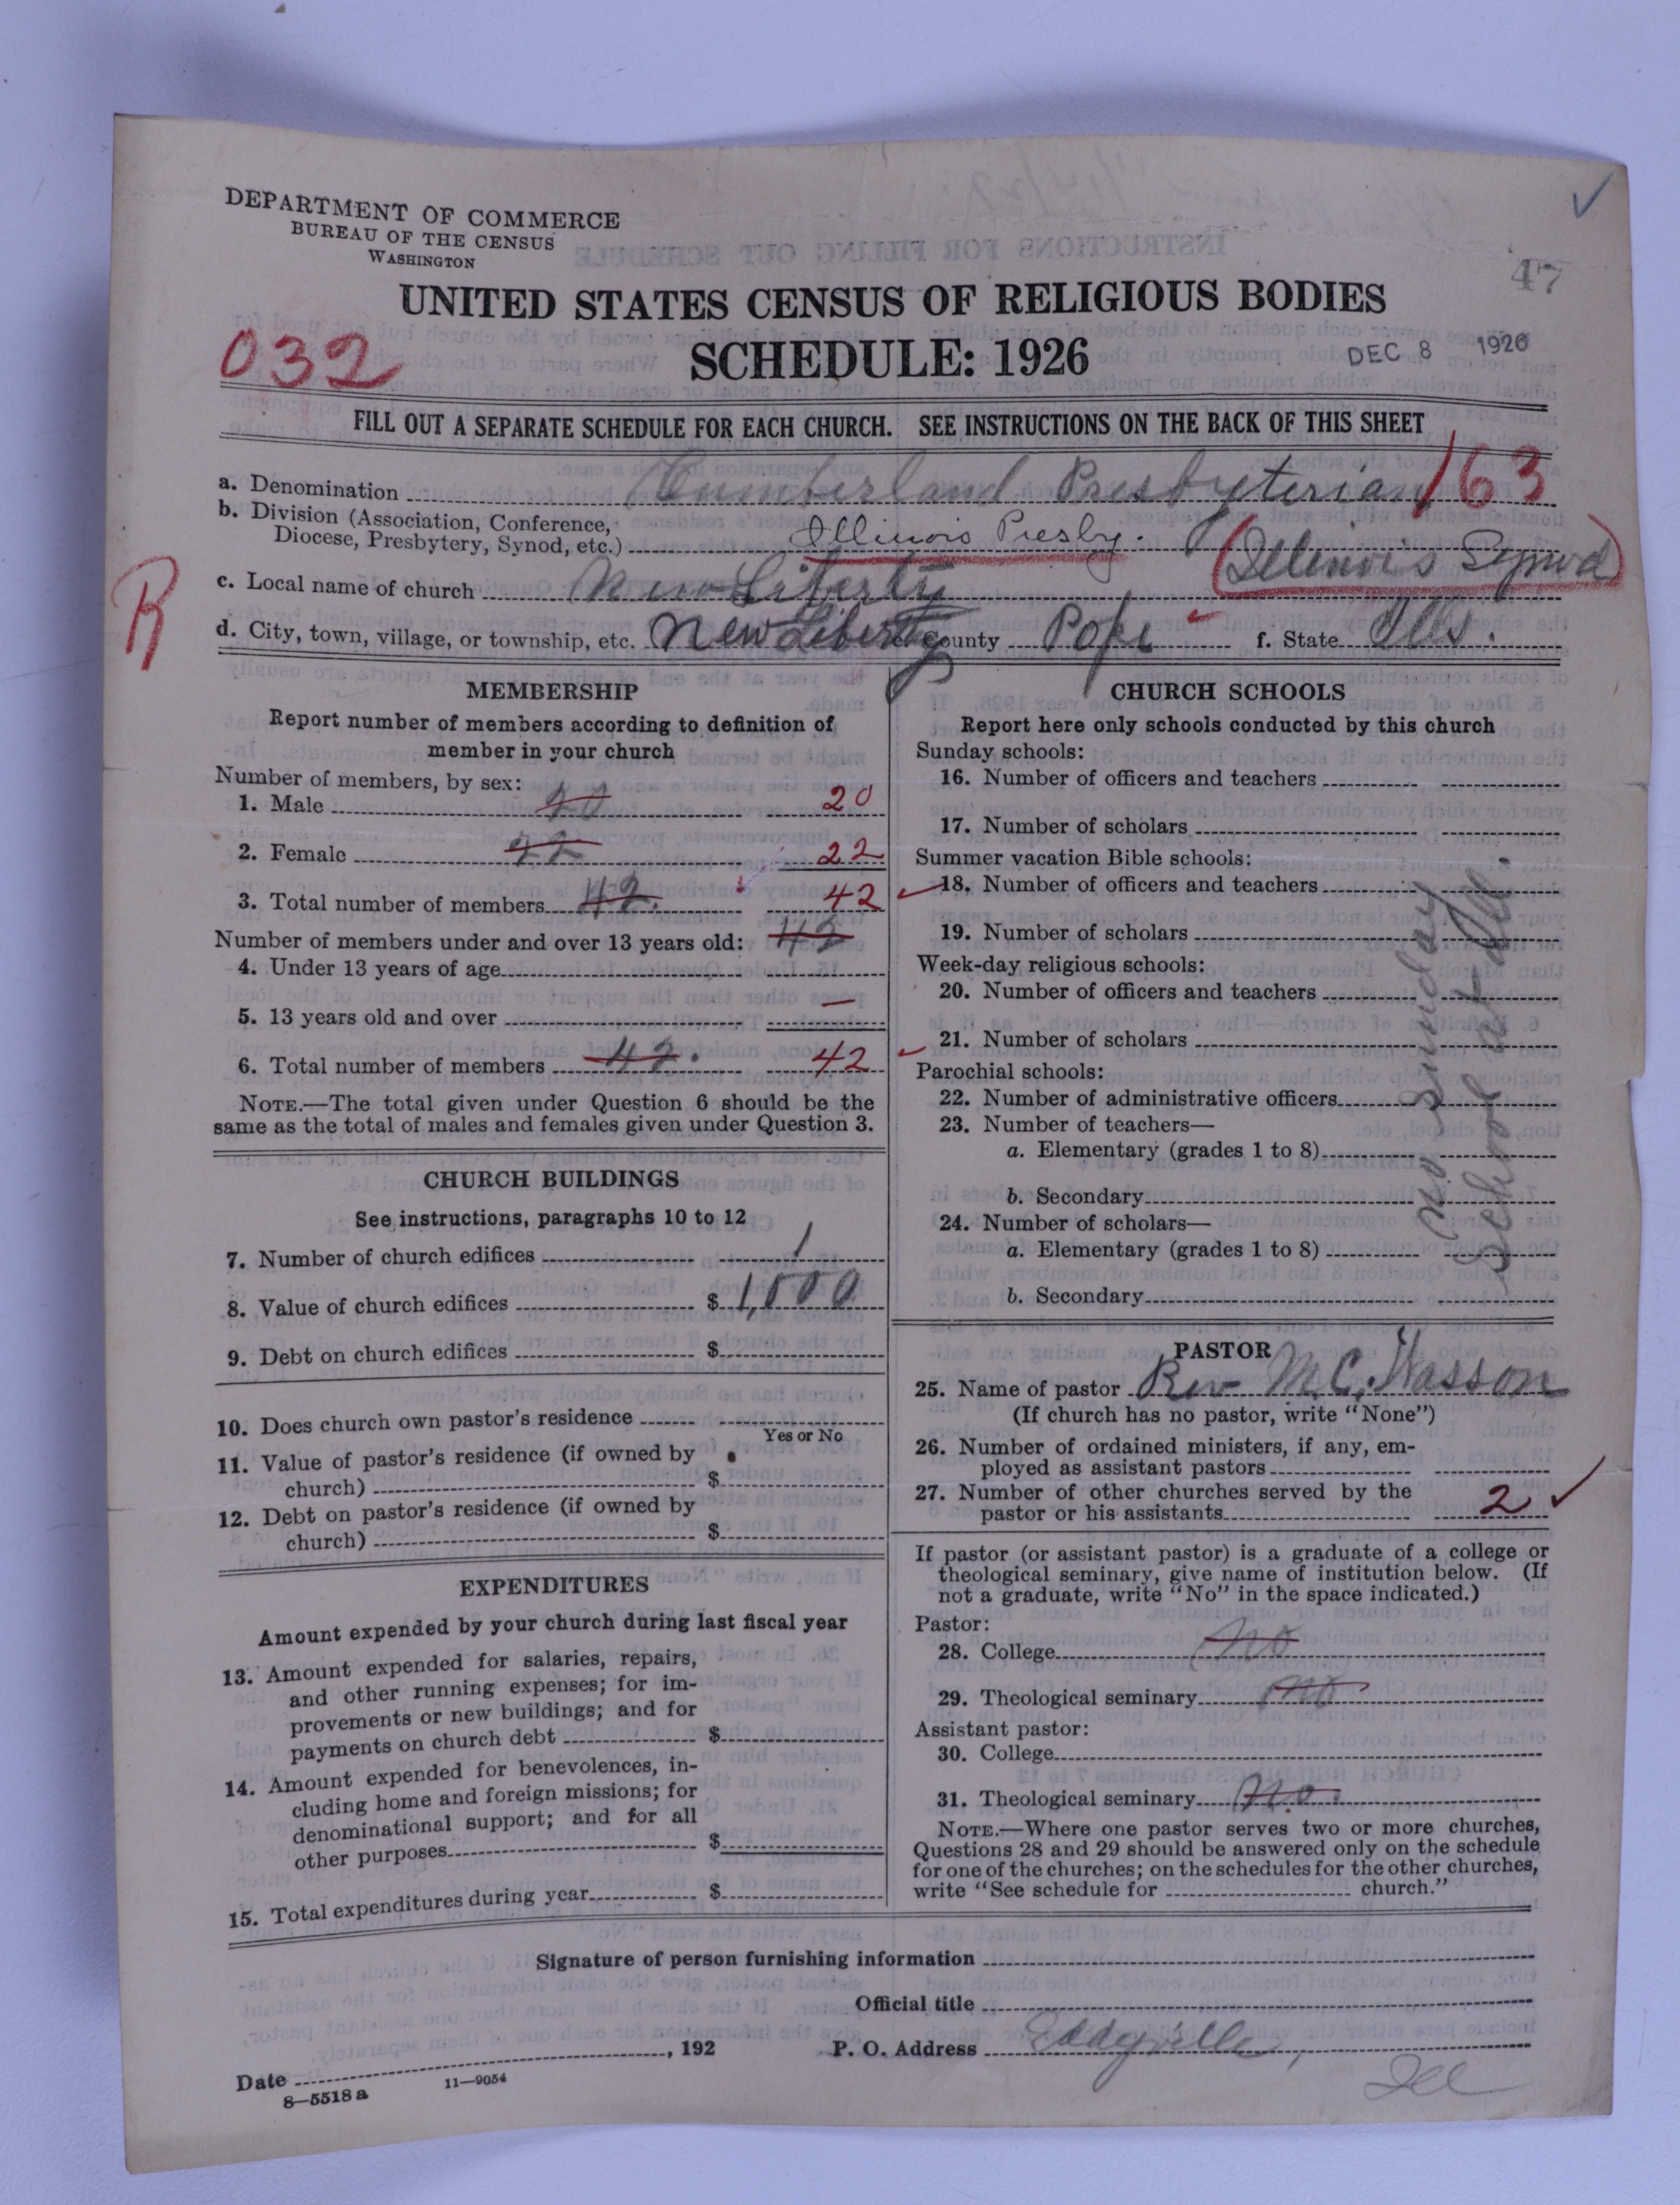 DEPARTMENT OF COMMERCE
BUREAU OF THE CENSUS
WASHINGTON
47
UNITED STATES CENSUS OF RELIGIOUS BODIES
032
SCHEDULE: 1926
DEC 8 1926
FILL OUT A SEPARATE SCHEDULE FOR EACH CHURCH. SEE INSTRUCTIONS ON THE BACK OF THIS SHEET
a. Denomination Cumberland Presbyterian 163
b. Division (Association, Conference, Diocese, Presbytery, Synod, etc.) Illinois Presby. (Illinois Synod)
R
c. Local name of church New Liberty
d. City, town, village, or township, etc. New Liberty e. County Pope f. State Ills.
MEMBERSHIP
Report number of members according to definition of
member in your church
Number of members, by sex:
1. Male 20 20
2. Female 22 22
3. Total number of members 42. 42
Number of members under and over 13 years old: 42
4. Under 13 years of age
5. 13 years old and over —
6. Total number of members 42. 42
NOTE.—The total given under Question 6 should be the
same as the total of males and females given under Question 3.
CHURCH BUILDINGS
See instructions, paragraphs 10 to 12
7. Number of church edifices 1
8. Value of church edifices $ 1,000
9. Debt on church edifices $
10. Does church own pastor's residence
Yes or No
11. Value of pastor's residence (if owned by
church) $
12. Debt on pastor's residence (if owned by
church) $
EXPENDITURES
Amount expended by your church during last fiscal year
13. Amount expended for salaries, repairs,
and other running expenses; for im-
provements or new buildings; and for
payments on church debt $
14. Amount expended for benevolences, in-
cluding home and foreign missions; for
denominational support; and for all
other purposes $
15. Total expenditures during year $
CHURCH SCHOOLS
Report here only schools conducted by this church
Sunday schools:
16. Number of officers and teachers
17. Number of scholars
Summer vacation Bible schools:
18. Number of officers and teachers
19. Number of scholars
Week-day religious schools:
20. Number of officers and teachers
21. Number of scholars
Parochial schools:
22. Number of administrative officers
23. Number of teachers—
a. Elementary (grades 1 to 8)
b. Secondary
24. Number of scholars—
a. Elementary (grades 1 to 8)
b. Secondary
No Sunday
School at all.
PASTOR
25. Name of pastor Rev M.C. Wasson
(If church has no pastor, write "None")
26. Number of ordained ministers, if any, em-
ployed as assistant pastors
27. Number of other churches served by the
pastor or his assistants 2
If pastor (or assistant pastor) is a graduate of a college or
theological seminary, give name of institution below. (If
not a graduate, write "No" in the space indicated.)
Pastor:
28. College No
29. Theological seminary No
Assistant pastor:
30. College
31. Theological seminary No.
NOTE.—Where one pastor serves two or more churches,
Questions 28 and 29 should be answered only on the schedule
for one of the churches; on the schedules for the other churches,
write "See schedule for church."
Signature of person furnishing information
Official title
Date , 192
P. O. Address Eddyville,
Ill
8—5518 a 11—9054